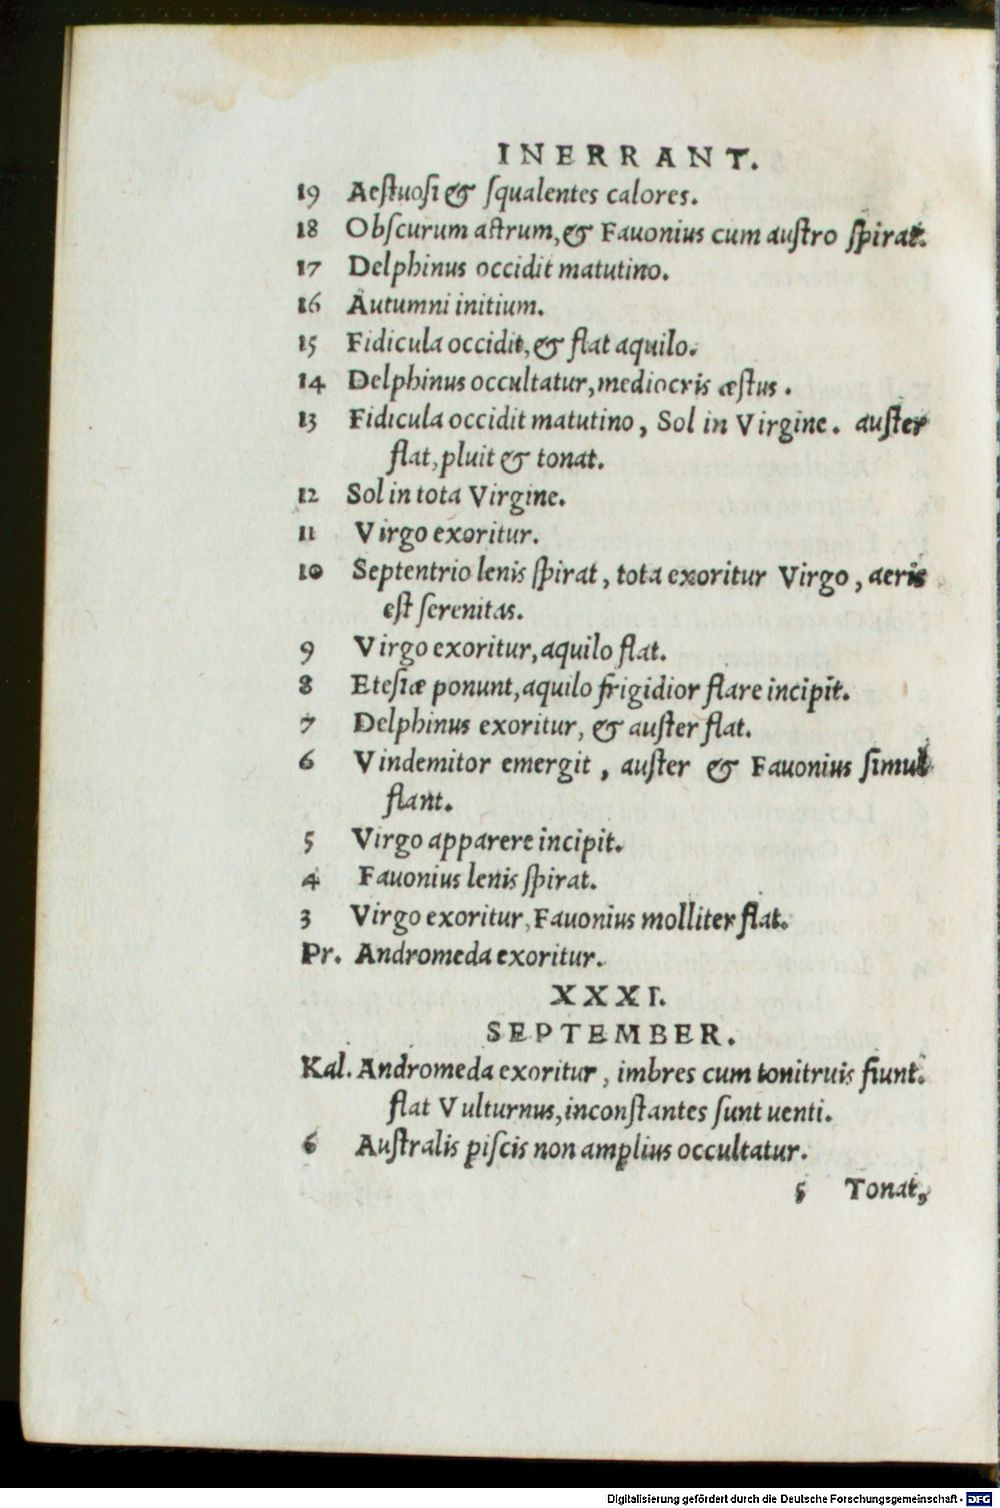 INERRANT.
19 Aeſtuoſi & ſqualentes calores.
18 Obſcurum aſtrum, & Fauonius cum auſtro ſpirat.
17 Delphinus occidit matutino.
16 Autumni initium.
15 Fidicula occidit, & flat aquilo.
14 Delphinus occultatur, mediocris æſtus.
13 Fidicula occidit matutino, Sol in Virgine. auſter
flat, pluit & tonat.
12 Sol in tota Virgine.
11 Virgo exoritur.
10 Septentrio lenis ſpirat, tota exoritur Virgo, aeris
eſt ſerenitas.
9 Virgo exoritur, aquilo flat.
8 Eteſiæ ponunt, aquilo frigidior flare incipit.
7 Delphinus exoritur, & auſter flat.
6 Vindemitor emergit, auſter & Fauonius ſimul
flant.
5 Virgo apparere incipit.
4 Fauonius lenis ſpirat.
3 Virgo exoritur, Fauonius molliter flat.
Pr. Andromeda exoritur.
XXXI.
SEPTEMBER.
Kal. Andromeda exoritur, imbres cum tonitruis fiunt.
flat Vulturnus, inconſtantes ſunt uenti.
6 Auſtralis piſcis non amplius occultatur.
5 Tonat,
Digitalisierung gefördert durch die Deutsche Forschungsgemeinschaft - DFG